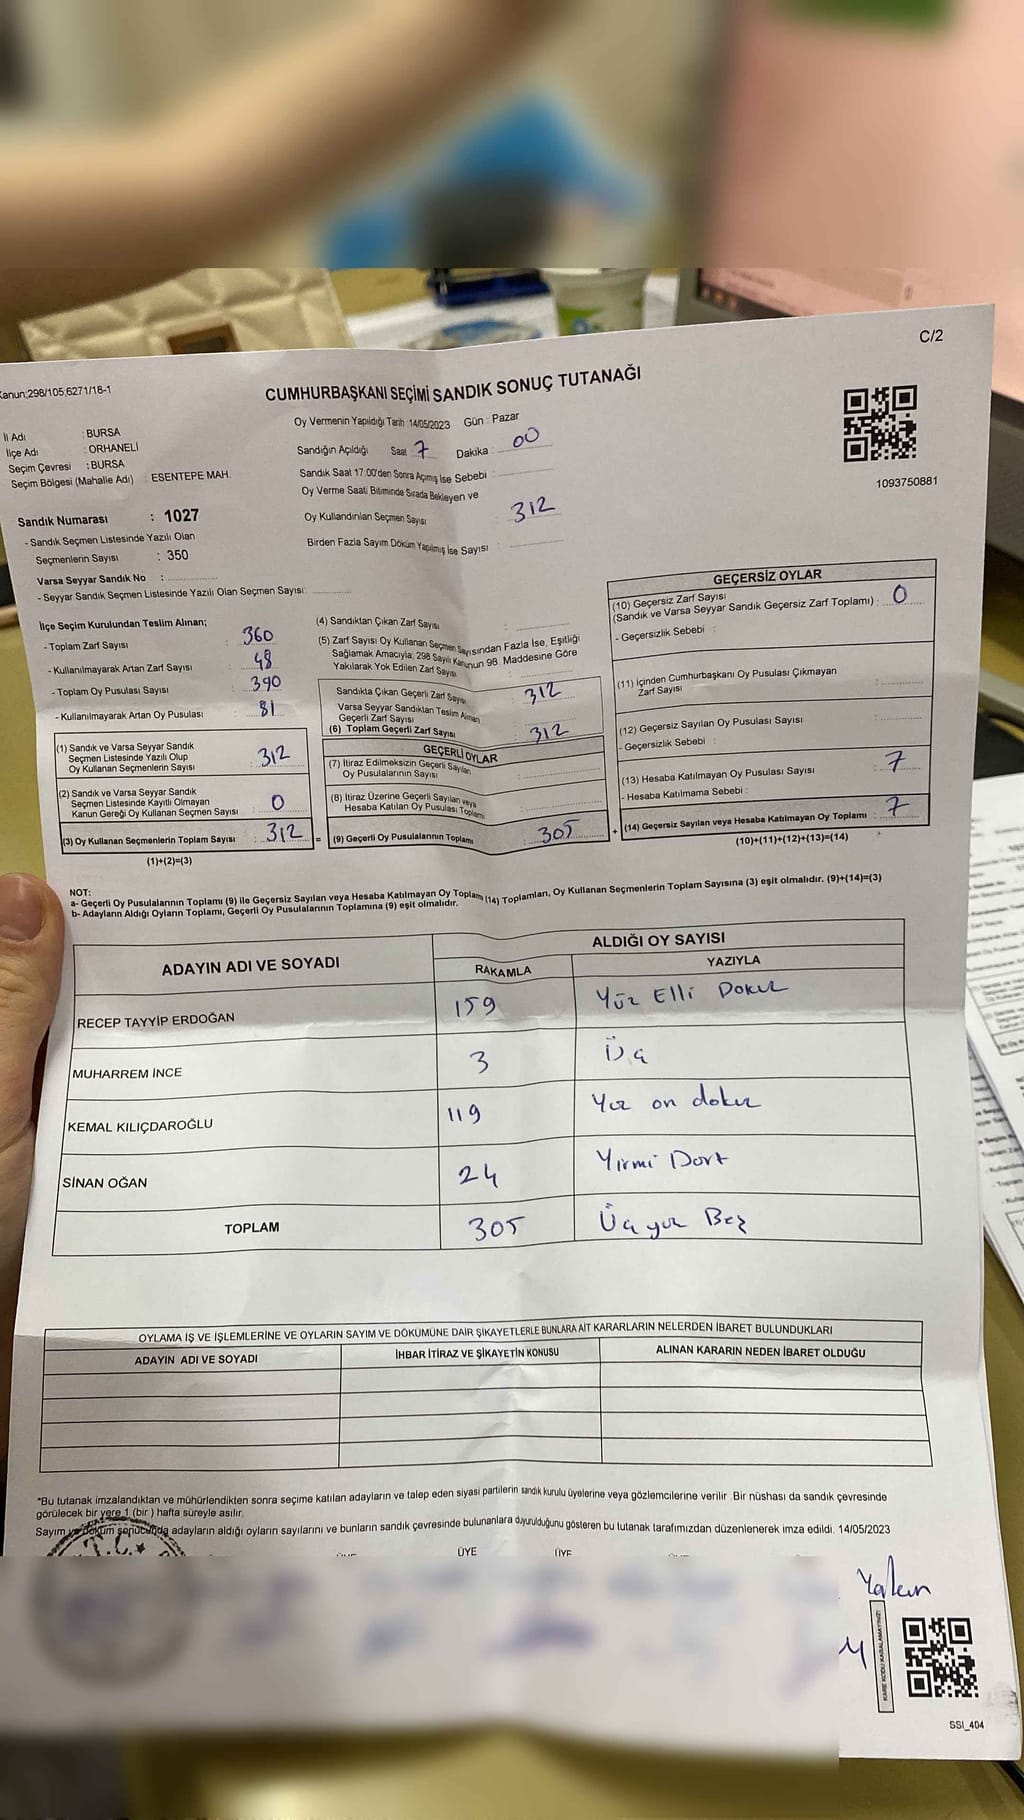 C/2
Kanun;298/105;6271/18-1
CUMHURBAŞKANI SEÇİMİ SANDIK SONUÇ TUTANAĞI
İl Adı : BURSA
İlçe Adı : ORHANELİ
Seçim Çevresi : BURSA
Seçim Bölgesi (Mahalle Adı) : ESENTEPE MAH.
Oy Vermenin Yapıldığı Tarih 14/05/2023 Gün : Pazar
Sandığın Açıldığı Saat 7 Dakika : 00
Sandık Saat 17:00'den Sonra Açımış İse Sebebi :
Oy Verme Saati Bitiminde Sırada Bekleyen ve
Oy Kullandırılan Seçmen Sayısı 312
Birden Fazla Sayım Döküm Yapılmış İse Sayısı :
1093750881
Sandık Numarası : 1027
- Sandık Seçmen Listesinde Yazılı Olan
Seçmenlerin Sayısı : 350
Varsa Seyyar Sandık No :
- Seyyar Sandık Seçmen Listesinde Yazılı Olan Seçmen Sayısı:
İlçe Seçim Kurulundan Teslim Alınan;
- Toplam Zarf Sayısı : 360
- Kullanılmayarak Artan Zarf Sayısı : 48
- Toplam Oy Pusulası Sayısı : 390
- Kullanılmayarak Artan Oy Pusulası : 81
(1) Sandık ve Varsa Seyyar Sandık
Seçmen Listesinde Yazılı Olup
Oy Kullanan Seçmenlerin Sayısı : 312
(2) Sandık ve Varsa Seyyar Sandık
Seçmen Listesinde Kayıtlı Olmayan
Kanun Gereği Oy Kullanan Seçmen Sayısı : 0
(3) Oy Kullanan Seçmenlerin Toplam Sayısı : 312 =
(1)+(2)=(3)
(4) Sandıktan Çıkan Zarf Sayısı :
(5) Zarf Sayısı Oy Kullanan Seçmen Sayısından Fazla İse, Eşitliği
Sağlamak Amacıyla; 298 Sayılı Kanunun 98. Maddesine Göre
Yakılarak Yok Edilen Zarf Sayısı :
Sandıkta Çıkan Geçerli Zarf Sayısı : 312
Varsa Seyyar Sandıktan Teslim Alınan
Geçerli Zarf Sayısı :
(6) Toplam Geçerli Zarf Sayısı : 312
GEÇERLİ OYLAR
(7) İtiraz Edilmeksizin Geçerli Sayılan
Oy Pusulalarının Sayısı :
(8) İtiraz Üzerine Geçerli Sayılan veya
Hesaba Katılan Oy Pusulası Toplamı :
(9) Geçerli Oy Pusulalarının Toplamı : 305 +
GEÇERSİZ OYLAR
(10) Geçersiz Zarf Sayısı
(Sandık ve Varsa Seyyar Sandık Geçersiz Zarf Toplamı) : 0
- Geçersizlik Sebebi :
(11) İçinden Cumhurbaşkanı Oy Pusulası Çıkmayan
Zarf Sayısı :
(12) Geçersiz Sayılan Oy Pusulası Sayısı :
- Geçersizlik Sebebi :
(13) Hesaba Katılmayan Oy Pusulası Sayısı : 7
- Hesaba Katılmama Sebebi :
(14) Geçersiz Sayılan veya Hesaba Katılmayan Oy Toplamı : 7
(10)+(11)+(12)+(13)=(14)
NOT:
a- Geçerli Oy Pusulalarının Toplamı (9) ile Geçersiz Sayılan veya Hesaba Katılmayan Oy Toplamı (14) Toplamları, Oy Kullanan Seçmenlerin Toplam Sayısına (3) eşit olmalıdır. (9)+(14)=(3)
b- Adayların Aldığı Oyların Toplamı, Geçerli Oy Pusulalarının Toplamına (9) eşit olmalıdır.
ADAYIN ADI VE SOYADI ALDIĞI OY SAYISI
RAKAMLA YAZIYLA
RECEP TAYYİP ERDOĞAN 159 Yüz Elli Dokuz
MUHARREM İNCE 3 Üç
KEMAL KILIÇDAROĞLU 119 Yüz on dokuz
SİNAN OĞAN 24 Yirmi Dört
TOPLAM 305 Üç yüz Beş
OYLAMA İŞ VE İŞLEMLERİNE VE OYLARIN SAYIM VE DÖKÜMÜNE DAİR ŞİKAYETLERLE BUNLARA AİT KARARLARIN NELERDEN İBARET BULUNDUKLARI
ADAYIN ADI VE SOYADI İHBAR İTİRAZ VE ŞİKAYETİN KONUSU ALINAN KARARIN NEDEN İBARET OLDUĞU
*Bu tutanak imzalandıktan ve mühürlendikten sonra seçime katılan adayların ve talep eden siyasi partilerin sandık kurulu üyelerine veya gözlemcilerine verilir .Bir nüshası da sandık çevresinde
görülecek bir yere 1 (bir ) hafta süreyle asılır.
Sayım ve döküm sonucunda adayların aldığı oyların sayılarını ve bunların sandık çevresinde bulunanlara duyurulduğunu gösteren bu tutanak tarafımızdan düzenlenerek imza edildi. 14/05/2023
T.C.
ÜYE ÜYE
Yalçın
KARE KODU KARALAMAYINIZ!
SSI_404